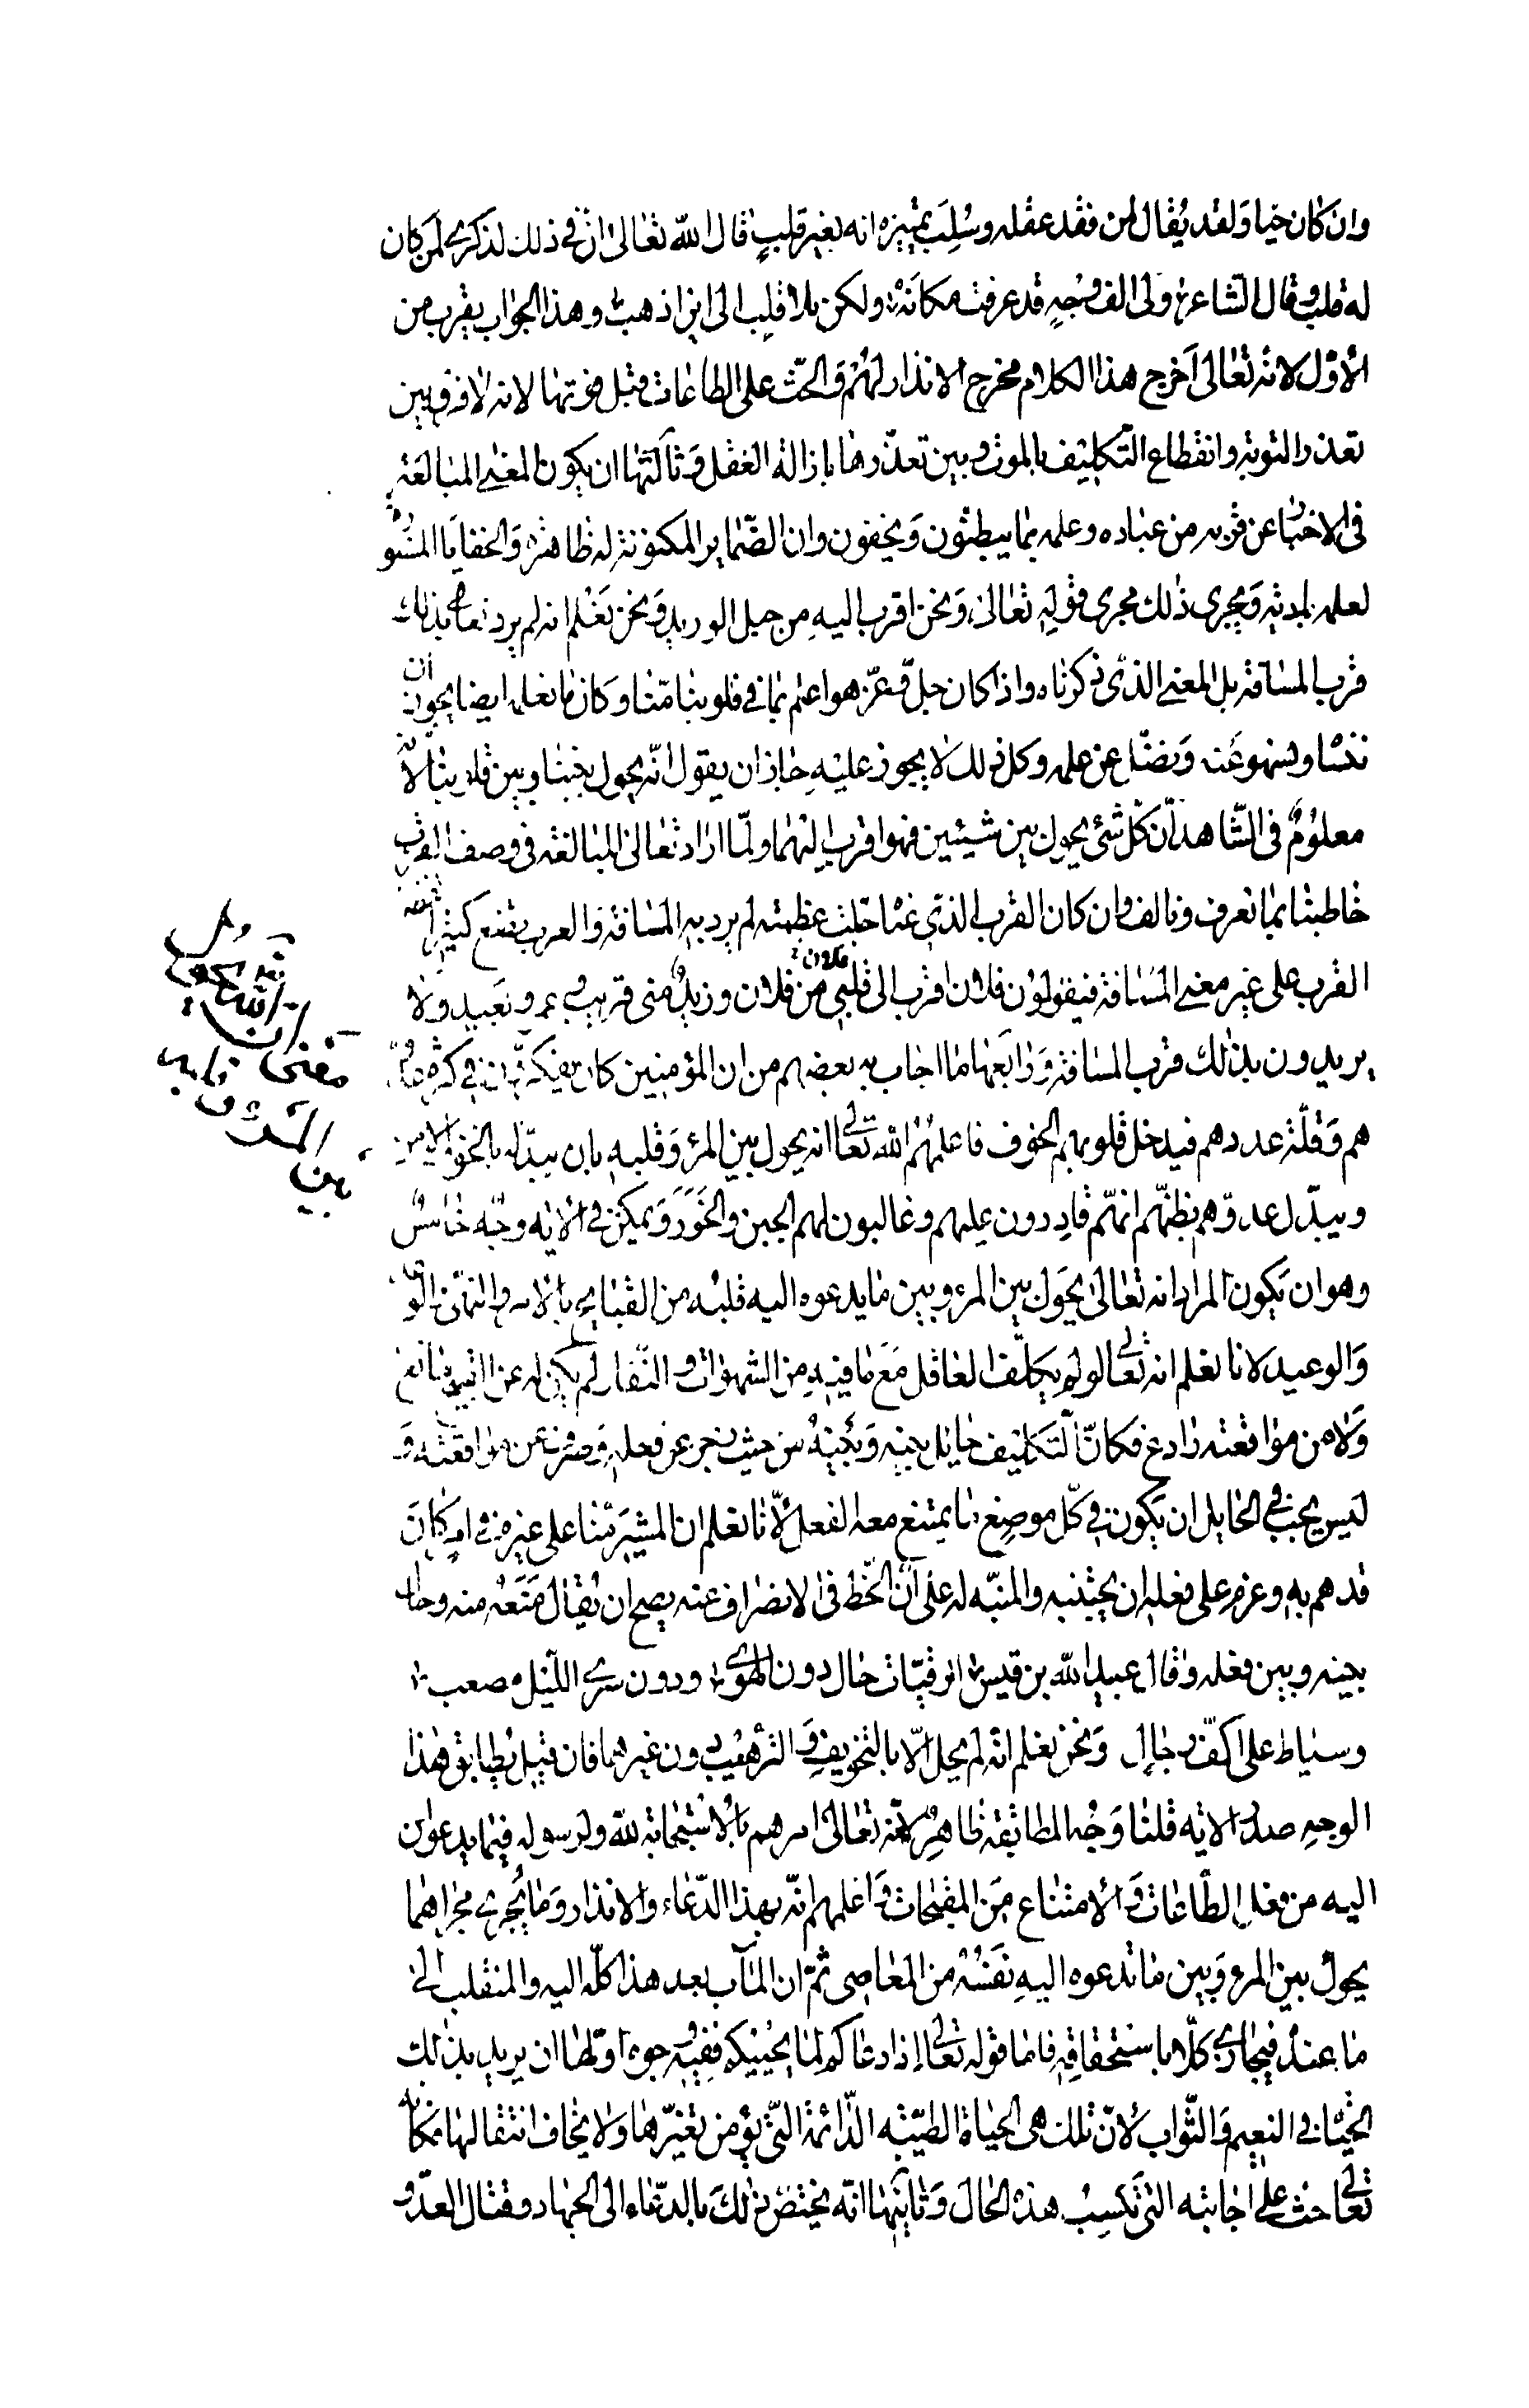 وان كان حيا ولقد يُقال لمن فقد عقله وسُلِبَ تمييزه انه بغير قلبٍ قال الله تعالى ان في ذلك لذكرى لمن كان
له قلب وقال الشاعر ولى الف وجهٍ قد عرفت مكانَهُ ولكن بلا قلب الى اين اذهب وهذا الجواب يقرب من
الأوّل لانه تعالى اَخرج هذا الكلام مخرج الانذار لهُمْ والحثّ على الطاعات قبل فوتها لانه لا فرق بين
تعذر التوبة وانقطاع التّكليف بالموت وبين تعذّرها بازالة العقل وثالثها ان يكون المعنى المبالغة
فى الاخبار عن قربه من عباده وعلمه بما يبطنون ويخفون وان الضّماير المكنونة له ظاهرة والخفايا المستو
لعلمه بادية ويجرى ذلك مجرى قوله تعالى ونحن اقرب اليهِ من حبل الوريد ونحن نَعْلم انه لم يرد تعالى بذلك
قرب المسافة بل المعنى الذى ذكرناه واذا كان جلّ وعزّ هو اعلم بما في قلوبنا منّا وكان ما نعلمه ايضا يجوز ان
ننسا ونسهو عنه ونضلّ عن علمه وكل ذلك لا يجوز عليهِ جاز ان يقول انّه يحول بيننا وبين قلوبنا لأنّه
معلومٌ فى الشّاهد انّ كل شئ يحول بين شيئين فهو اقرب اليهما ولمّا اراد تعالى المبالغة فى وصف القرب
خاطبنا بما نعرف ونالف وان كان القرب الذى عنا جلت عظمته لم يرد به المسافة والعرب يضع كثيرا لفظة
القرب على غير معنى المسافة فيقولون فلان اقرب الى قلبى من فلان وزيدٌ منى قريب وعمرو بعيد ولا
يريدون بذلك قرب المسافة ورابعها ما اجاب به بعضهم من ان المؤمنين كان يفكرون في كثرة عدو
هم وقلّة عددهم فيدخل قلوبهم الخوف فاعلمهُم الله تعالى انه يحول بين المرء وقلبه بان يبدّله بالخوف الامن
ويبدّل عدوّهم بظنّهم انهّم قادرون عليهم وغالبون لهم الجبن والخَوَر ويمكن في الآيه وجه خامسٌ
وهو ان يكون المراد انه تعالى يحول بين المرء وبين ما يدعوه اليه قلبه من القبايح بالامر والنهى والوعد
والوعيد لانا نعلم انه تعالى لو لم يكلّف العاقل مَعَ ما فيه من الشهوات والنّفار لم يكن له عن القبيح مانع
ولا من مواقعته رادع فكانّ التكليف حايل بينه وبينهُ من حيث زجر عن فعله وصرف عن مواقعته و
ليس يجب فى الحايل ان يكون فى كلّ موضع ما يمتنع معه الفعل لأنّا نعلم ان المشير منا على غيره في امرٍ كان
قد هم به وعزم على فعله ان يجتنبه والمنبّه له على انّ الحّظ فى الانصراف عنه يصح ان يُقال مَنَعَهُ منه وحال
بينه وبين فعله وقال عبيد الله بن قيس الرقيّات حال دون الهوى ودون سرى الليل مصعب
وسياط على اكفّ رجال ونحن نعلم انه لم يحل الّا بالتخويف والترهيب دون غيرهما فان قيل يُطابق هذا
الوجه صدرَ الايه قلنا وَجْه المطابقة ظاهرٌ لانّه تعالى امرهم بالاستجابة لله ولرسوله فيما يدعوان
اليه من فعل الطّاعات والامتناع من المقبّحات واعلمهم انّه بهذا الدّعاء والانذار وما يُجرى مجراهما
يحول بين المرء وبين ما تدعوه اليهِ نفسُهُ من المعاصى ثمّ ان المآب بعد هذا كلّه اليه والمنقلب الى
ما عنده فيجازى كلّا باستحقاقه فاما قوله تعالى اذا دعاكم لما يحييكم ففيه وجوه اوّلها ان يريد بذلك
الحياة فى النعيم والثّواب لأنّ تلك هى الحياة الطيّبة الدّائمة التّى يؤمن تغيّرها ولا يخاف انتقالها فكانّه
تعالى حث على اجابته التى تكسبُ هذه الحال وثانيها انّه يختصّ ذلكَ بالدعّاء الى الجهاد وقتال العدّو